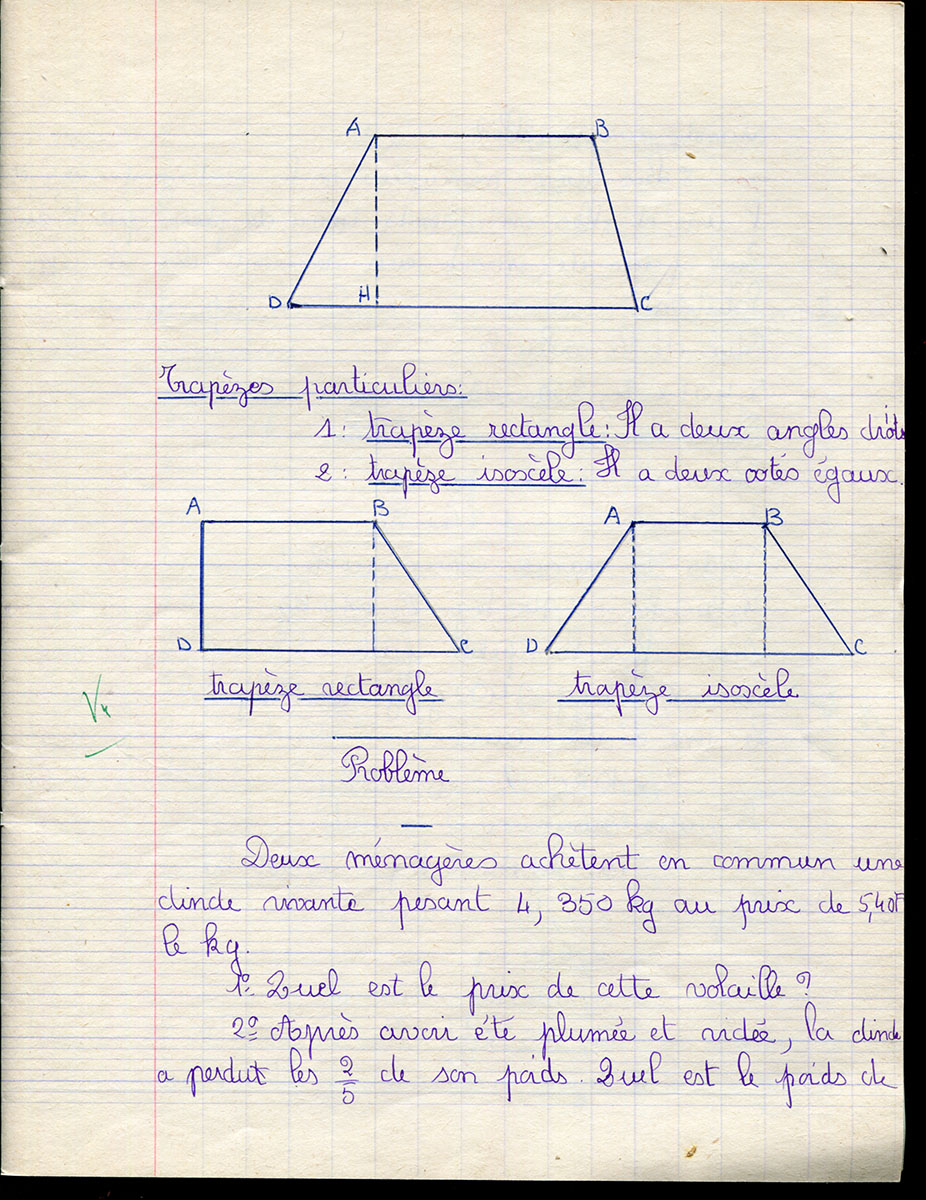 A B
D H C
Trapèzes particuliers:
1: trapèze rectangle: Il a deux angles droits
2: trapèze isoscèle: Il a deux cotés égaux.
A B A B
D C D C
trapèze rectangle trapèze isoscèle
Problème
Deux ménagères achètent en commun une
dinde vivante pesant 4, 350 kg au prix de 5,40F
le kg.
1º Quel est le prix de cette volaille ?
2º Après avoir été plumée et vidée, la dinde
a perdut les 2/5 de son poids. Quel est le poids de